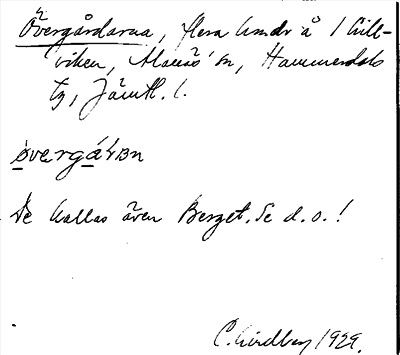 Övergårdarna, flera hmdr å Gill-
viken, Alanäs sn, Hammerdals
tg, Jämtl. l.
øvergáɽɒn
De kallas även Berget. Se d.o.!
C. Lindberg 1929.